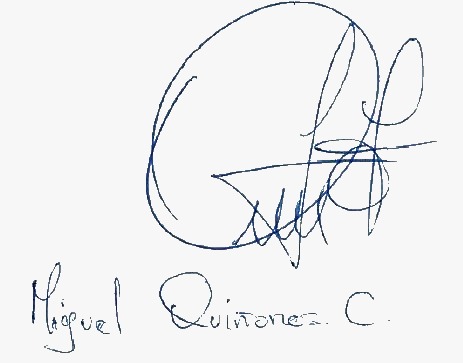 Miguel Quiñonez C.